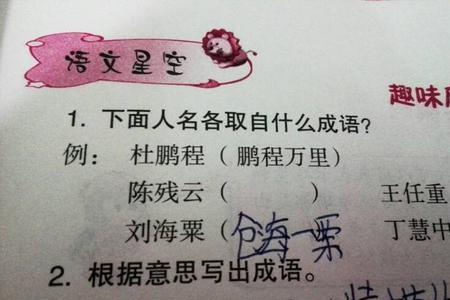 语文星空
趣味
1. 下面人名各取自什么成语?
例: 杜鹏程 ( 鹏程万里 )
陈残云 ( ) 王任重
刘海粟 ( 沧海一栗 丁慧中
2. 根据意思写出成语。